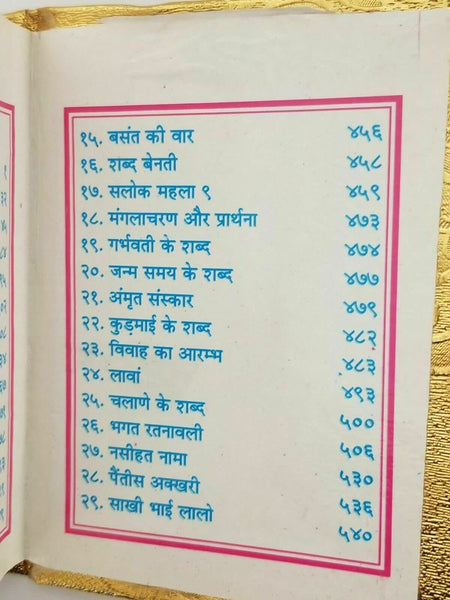 १५. बसंत की वार ४५६
१६. शब्द बेनती ४५८
१७. सलोक महला ९ ४५९
१८. मंगलाचरण और प्रार्थना ४७३
१९. गर्भवती के शब्द ४७४
२०. जन्म समय के शब्द ४७७
२१. अंमृत संस्कार ४७९
२२. कुड़माई के शब्द ४८२
२३. विवाह का आरम्भ ४८३
२४. लावां ४९३
२५. चलाणे के शब्द ५००
२६. भगत रतनावली ५०६
२७. नसीहत नामा ५३०
२८. पैंतीस अक्खरी ५३६
२९. साखी भाई लालो ५४०